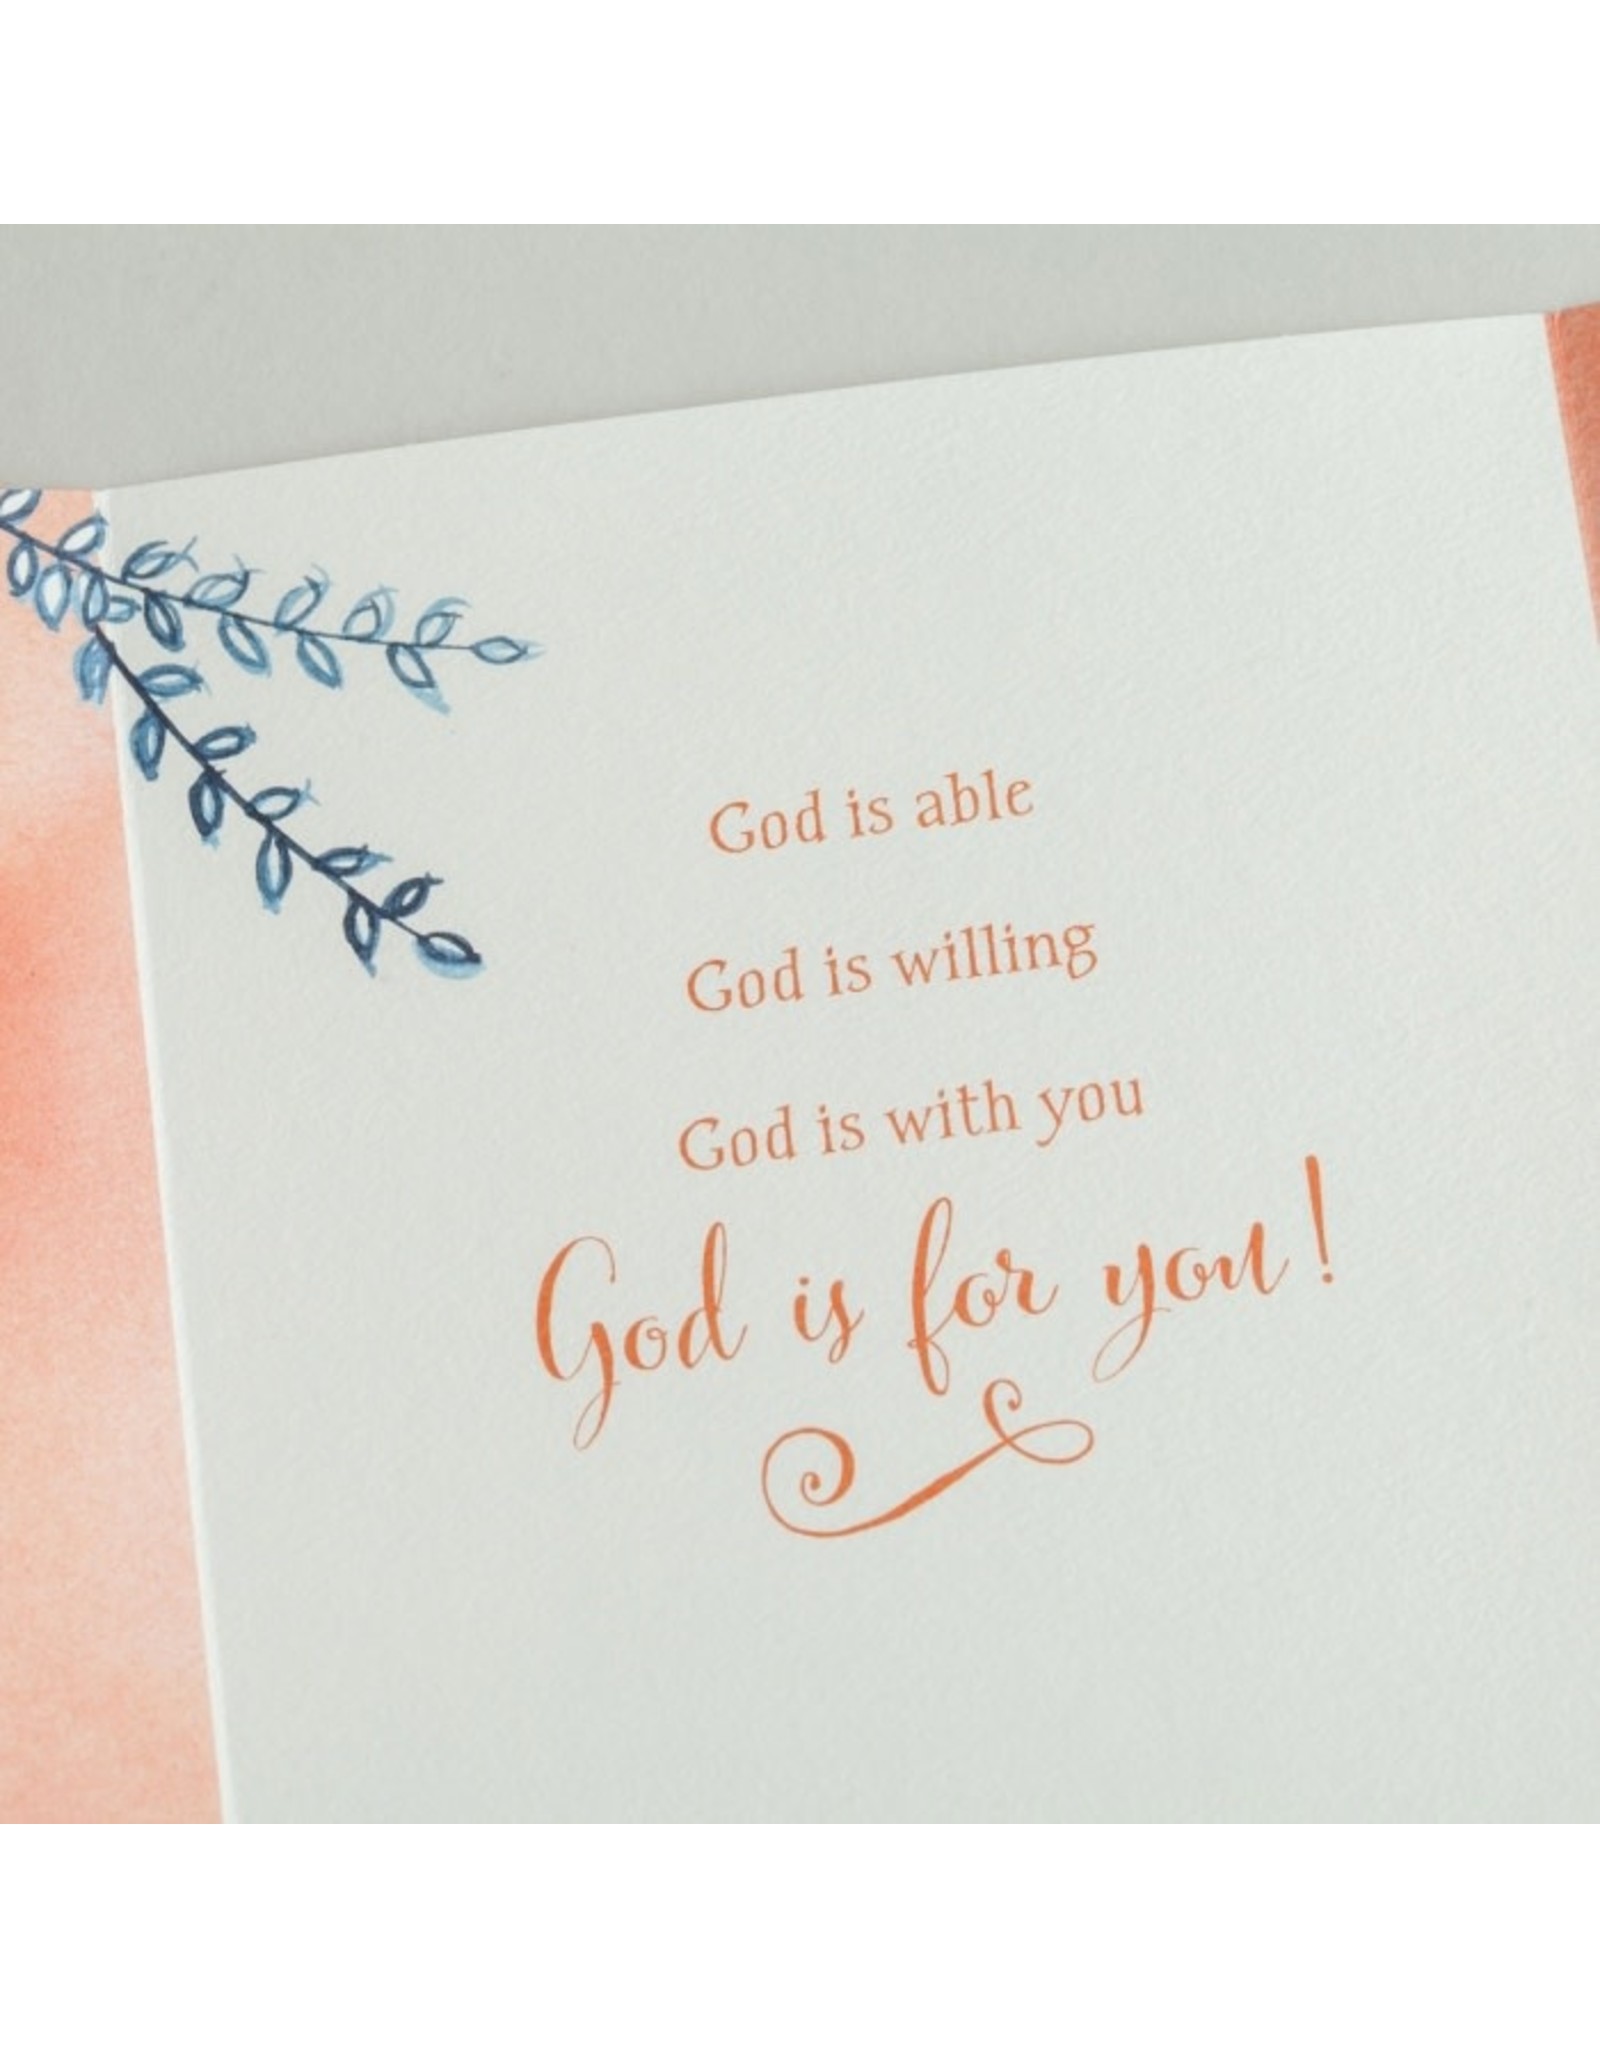 God is able
God is willing
God is with you
God is for you!